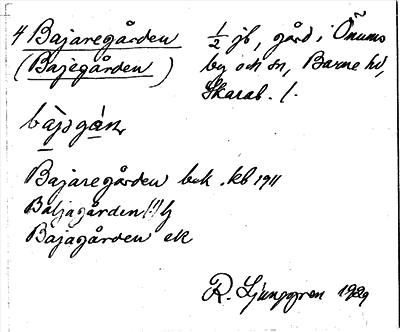 4 Bajaregården ½ jb, gård i Önums
(Bajegården) by och sn, Barne hd,
Skarab. l.
bàjsgán
Bajaregården bek. kb 1911
Baljagården (!) lj
Bajagården ek
R. Ljunggren 1929